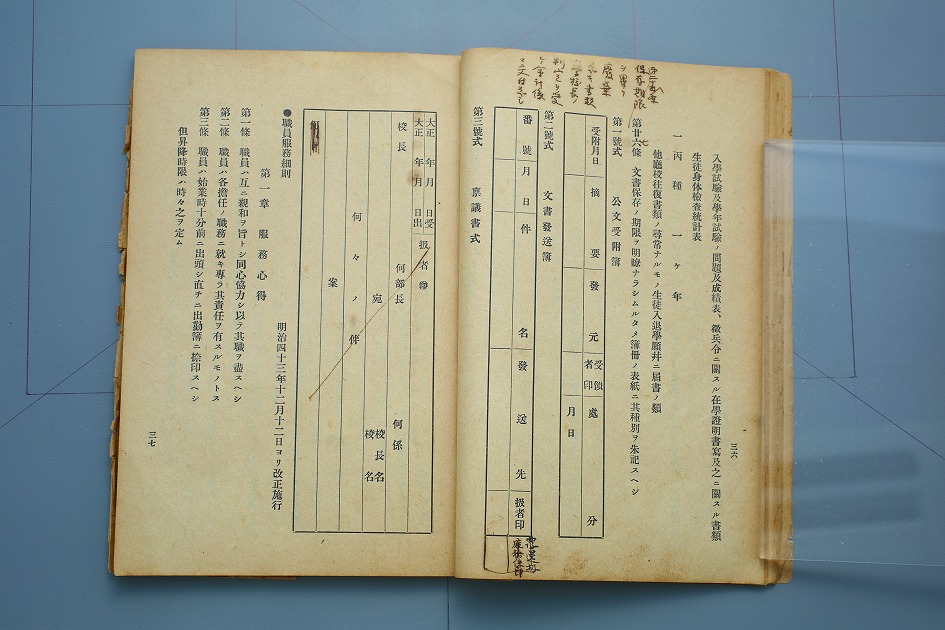 入學試驗及學年試驗ノ問題及成績表、徵兵令ニ關スル在學證明書寫及之ニ關スル書類
生徒身体檢査統計表
一 丙種 一ヶ年
他廳校往復書類ノ尋常ナルモノ生徒入退學願幷ニ屆書ノ類
第廿六條 文書保存ノ期限ヲ明瞭ナラシムルタメ簿冊ノ表紙ニ其種別ヲ朱記スヘシ
七
第一號式 公文受附簿
受附月日 摘要 發元 受領者印 處分
月日
第二號式 文書發送簿
番號 月日 件名 發送先 扱者印
第三號式 稟議書式
保存期限
廢棄
三六
大正 年 月 日受
大正 年 月 日出
扱者㊞
校長 何部長 何係
宛名 校長名
校名
何々ノ件
案
●職員服務細則
明治四十三年十二月十二日ヨリ改正施行
第一章 服務心得
第一條 職員ハ互ニ親和ヲ旨トシ同心協力シ以テ其職ヲ盡スヘシ
第二條 職員ハ各擔任ノ職務ニ就キ專ラ其責任ヲ有スルモノトス
第三條 職員ハ始業時十分前ニ出頭シ直チニ出勤簿ニ捺印スヘシ
但昇降時限ハ時々之ヲ定ム
三七